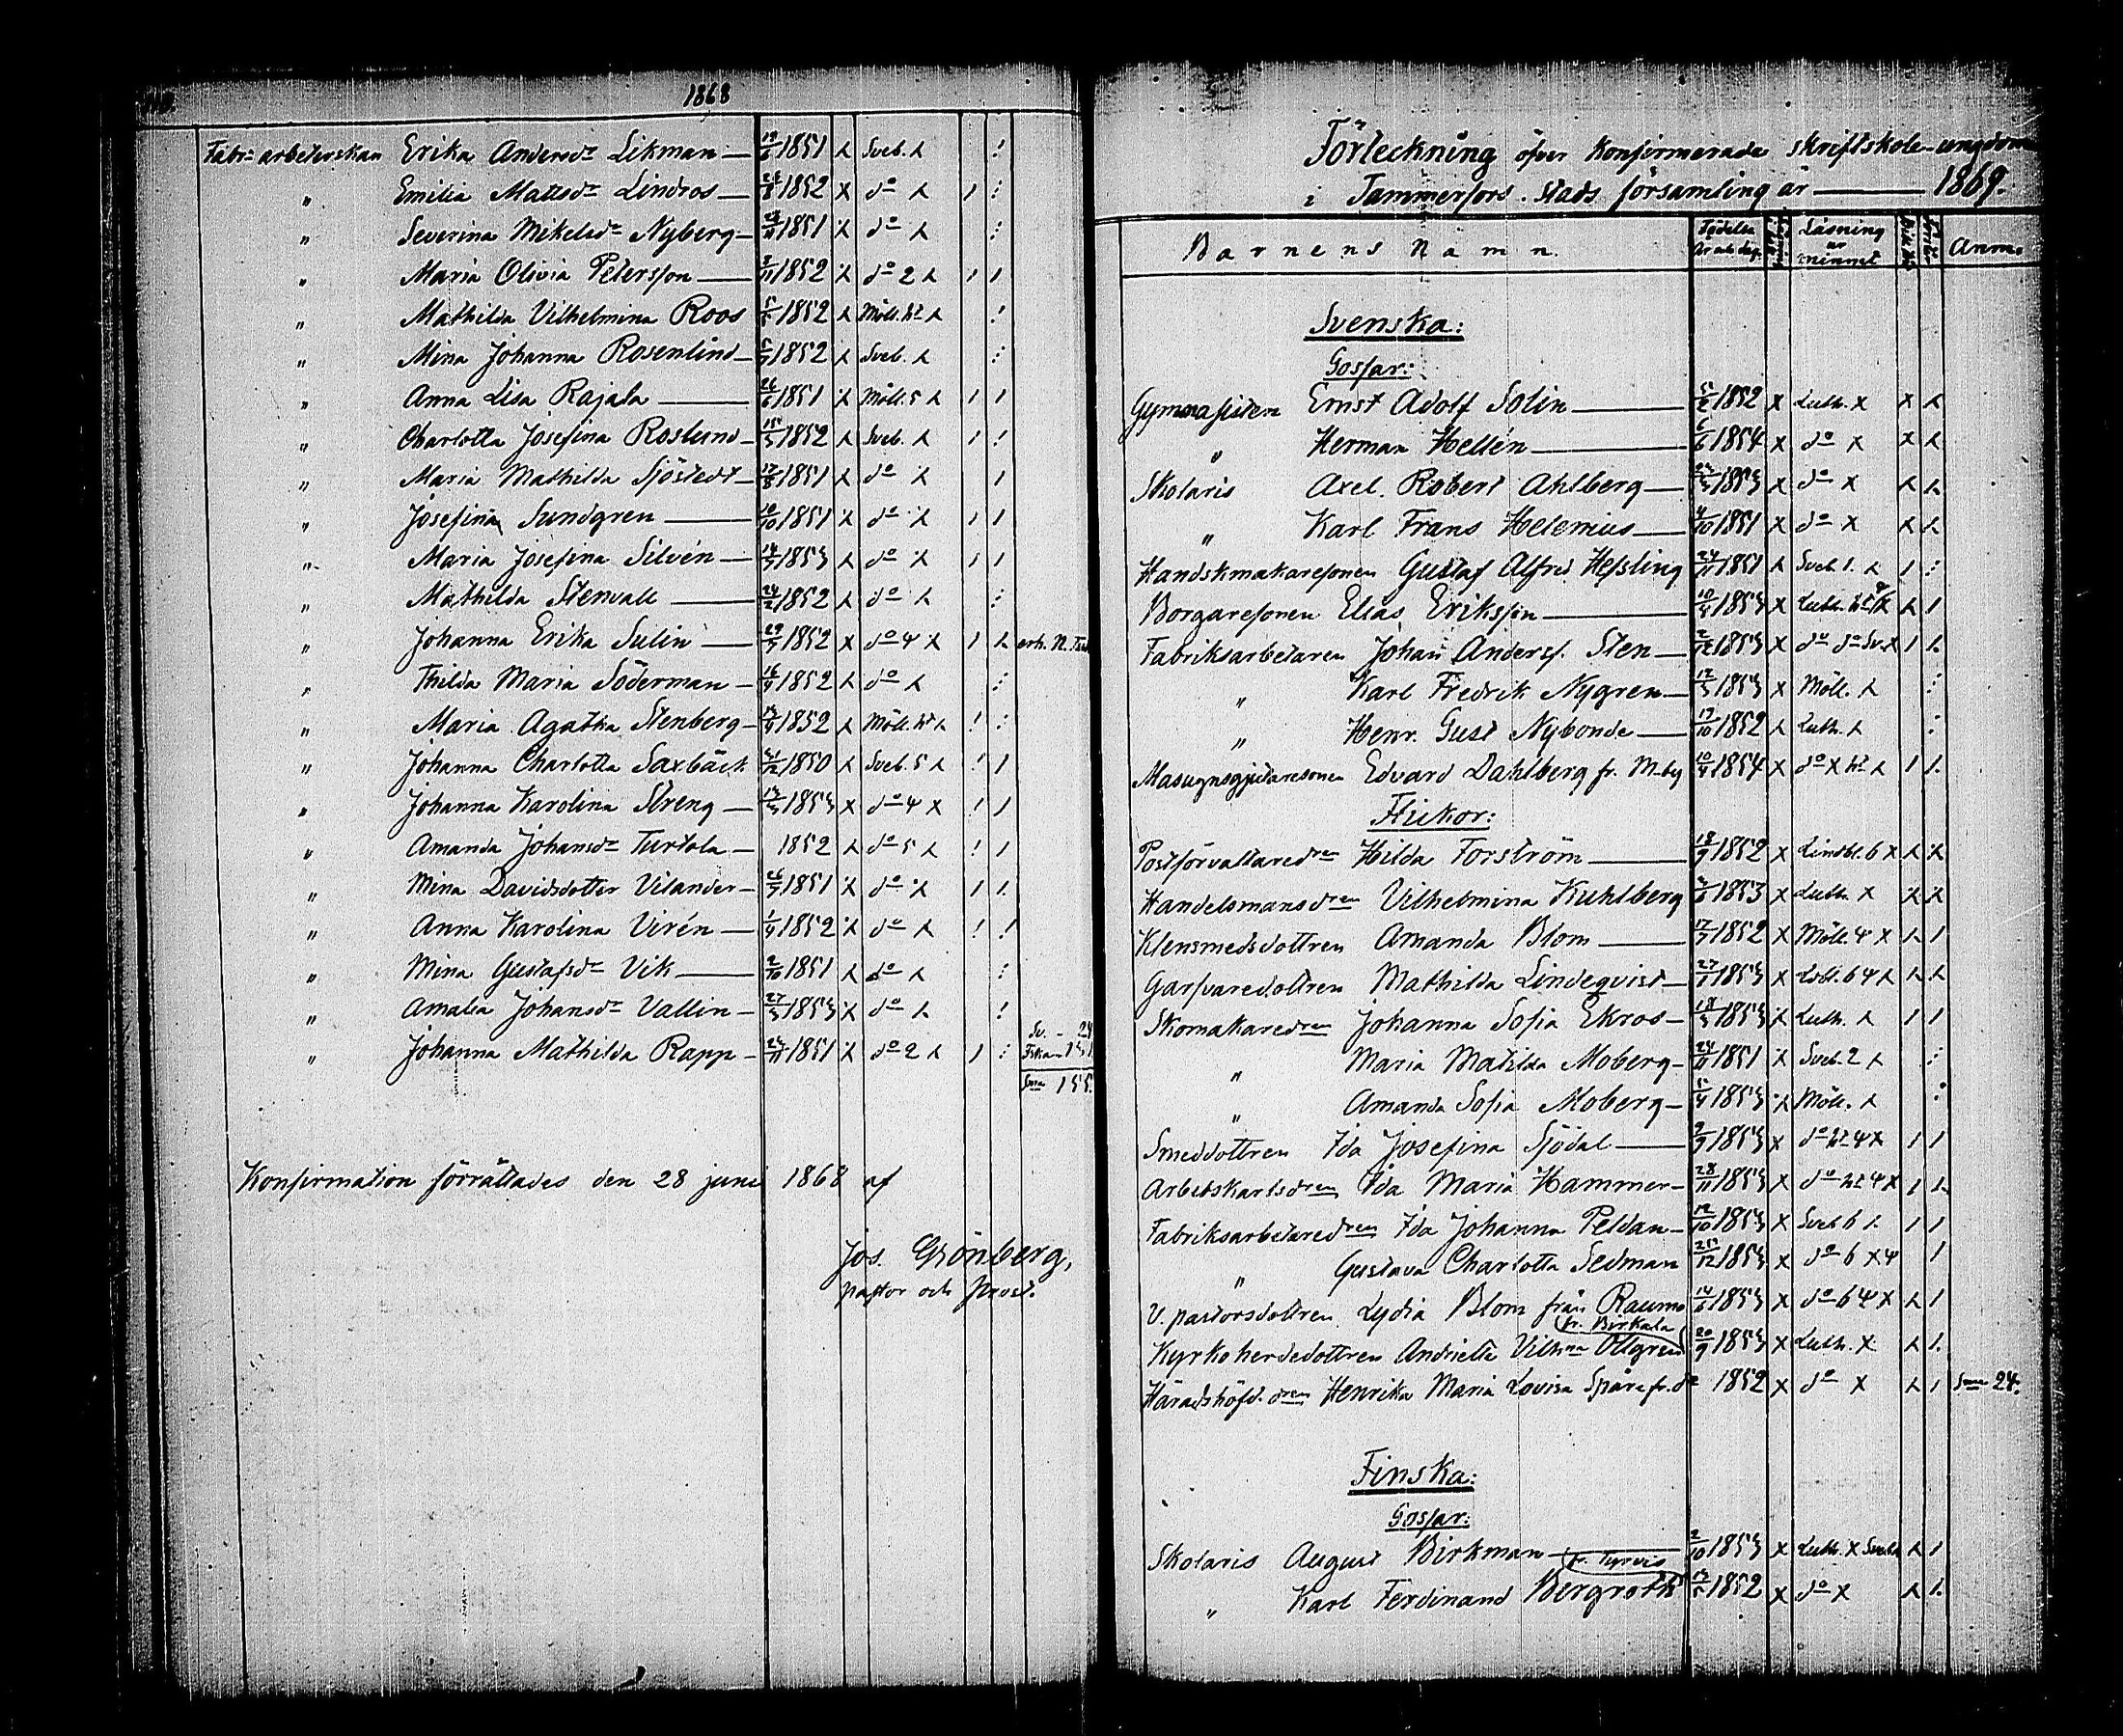 1868
Fabr: arbeterskan Erika Andersdr Likman — 19/6 1851 Sveb.
" Emilia Mattsdr Lindros — 1852 do
" Severina Mikelsdr Nyberg — 1851 do
" Maria Olivia Petersson — 1852 do 2
" Mathilda Vilhelmina Roos 1852 Möll.
" Mina Johanna Rosenlind — 1852 Sveb.
" Anna Lisa Rajala — 26/6 1851 Möll. 5
" Charlotta Josefina Roslund — 15/3 1852 Sveb.
" Maria Mathilda Sjöstedt — 17/8 1851 do
" Josefina Sundgren — 10/10 1851 do
" Maria Josefina Silvén — 1853 do
" Mathilda Stenvall — 24/2 1852 do
" Johanna Erika Sulin — 1852 do 4 erh. N. Test
" Thilda Maria Söderman — 16/9 1852 do
" Maria Agatha Stenberg — 1852 Möll.
" Johanna Charlotta Saxbäck 1850 Sveb. 5
" Johanna Karolina Streng — 1853 do 4
" Amanda Johansdr Turtola — 1852 do 5
" Mina Davidsdotter Vilander — 1851 do
" Anna Karolina Virén — 1852 do
" Mina Gustafsdr Vik — 2/10 1851 do
" Amalia Johansdr Vallin — 27/3 1853 do
" Johanna Mathilda Rapp — 1851 do 2
Sv. - 24
Fska - 131
Sma 155.
Konfirmation förrättades den 28 juni 1868 af
Jos. Grönberg,
pastor och prost.
Förteckning öfver Konfirmerade skriftskole-ungdomen
i Tammerfors Stads församling år — 1869.
Barnens Namn. Födelse år och dag. Läsning ur minnet Anm.
Svenska:
Gossar:
Gymnasisten Ernst Adolf Solin — 5/2 1852 Luth.
" Herman Hellén — 6/6 1854 do
Skolaris Axel Robert Ahlberg — 1853 do
" Karl Frans Helenius — 4/10 1851 do
Handskmakaresonen Gustaf Alfred Hessling 24/11 1851 Sveb 1.
Borgaresonen Elias Eriksson — 1853 Luth.
Fabriksarbetaren Johan Anderss. Sten — 2/12 1853 do do Sv.
" Karl Fredrik Nygren — 12/3 1853 Möll.
" Henr. Gust Nybonde — 1852 Luth.
Masugnsgjutaresonen Edvard Dahlberg fr. M-by 1854 do
Flickor:
Postförvaltaredren Hilda Forström — 18/9 1852 Lindbl. 6
Handelsmansdren Vilhelmina Kuhlberg 1853 Luth.
Klensmedsdottren Amanda Blom — 1852 Möll. 4
Garfvaredottren Mathilda Lindeqvist — 1853 64
Skomakaredren Johanna Sofia Ekros — 18/3 1853 Luth.
" Maria Matilda Moberg — 1851 Sveb. 2
" Amanda Sofia Moberg — 1853 Möll.
Smeddottren Ida Josefina Sjödal — 9/9 1853 do 4
Arbetskarlsdren Ida Maria Hammer — 28/11 1853 do 4
Fabriksarbetaredren Ida Johanna Peldan — 1853 Sveb 6
" Gustava Charlotta Sedman 25/12 1853 do 6 4
V. pastorsdottren Lydia Blom från Raumo 14/6 1853 do 64
fr. Birkala
Kyrkoherdedottren Andriette Vilhna Ottgren 20/9 1853 Luth.
Häradshöfd. dren Henrika Maria Lovisa Spåre fr. do 1852 do Sma 24.
Finska:
Gossar:
Skolaris August Birkman — 2/10 1853 Luth. Sveb
fr. Tyrvis
" Karl Ferdinand Bergroth 1852 do